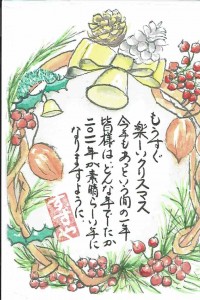 もうすぐ
楽しいクリスマス
今年もあっという間の一年
皆様は、どんな年でしたか
二〇二一年が素晴らしい年に
なりますように、
すずや